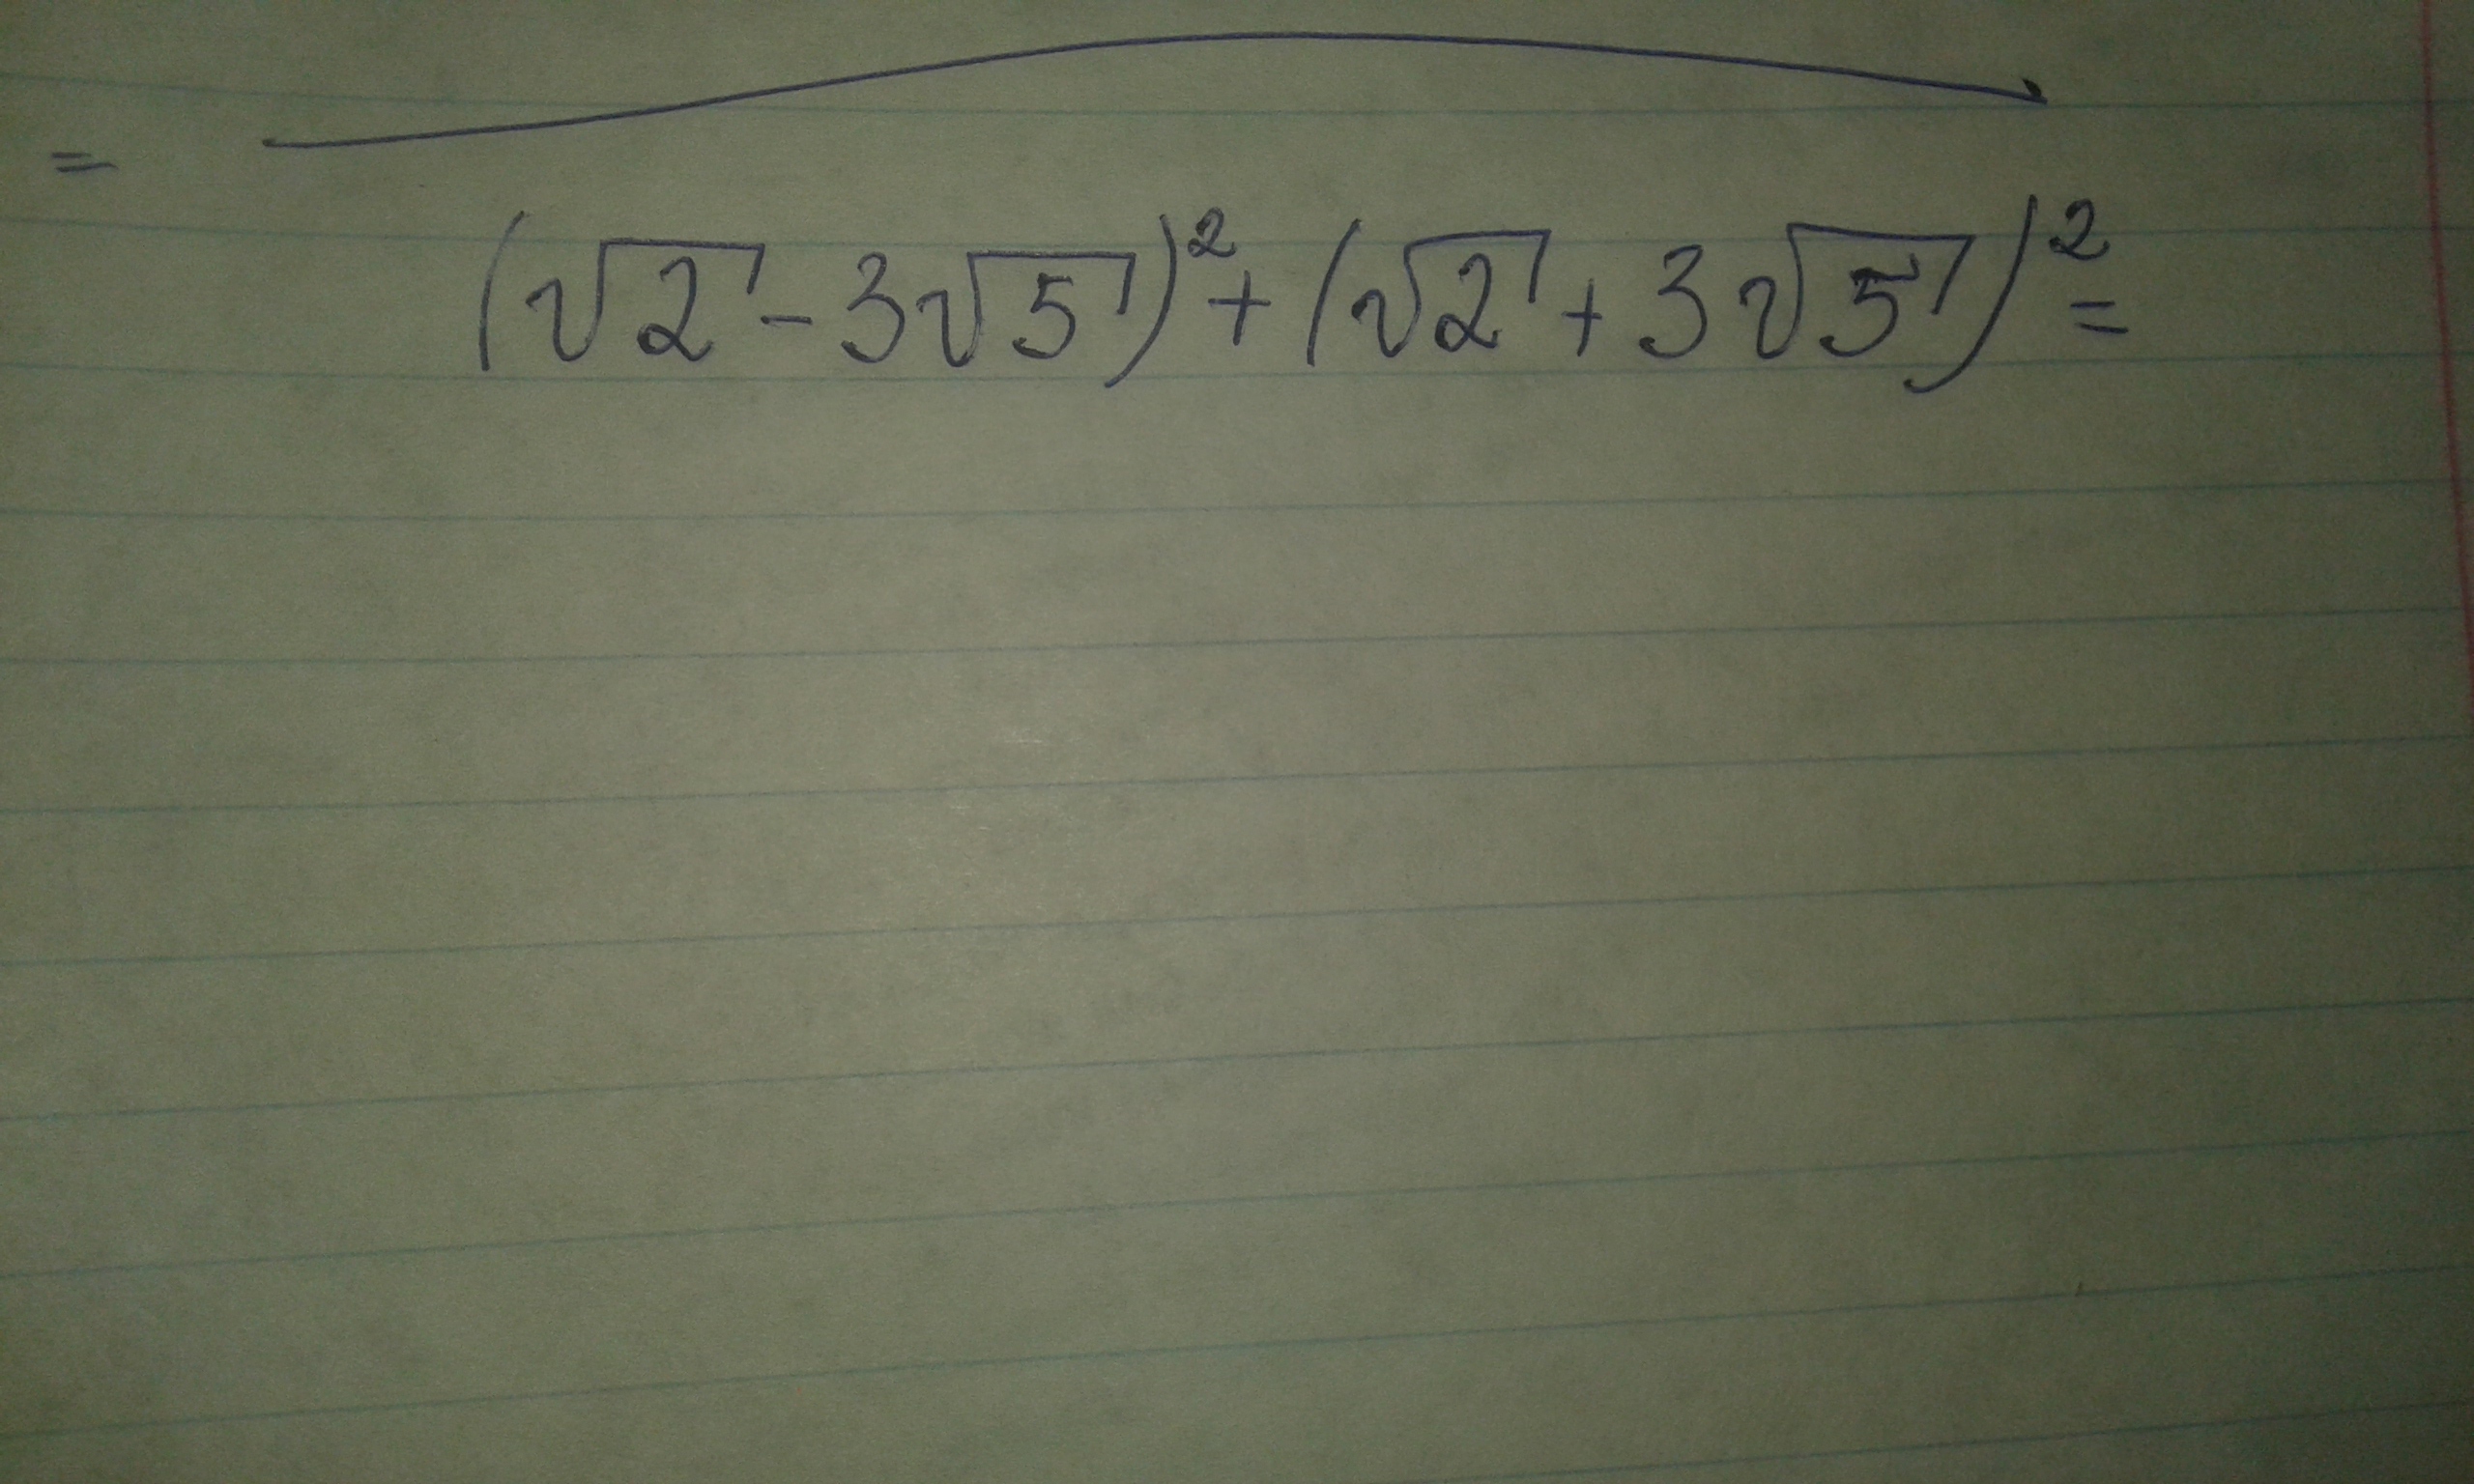 =
(√2 - 3√5)² + (√2 + 3√5)² =